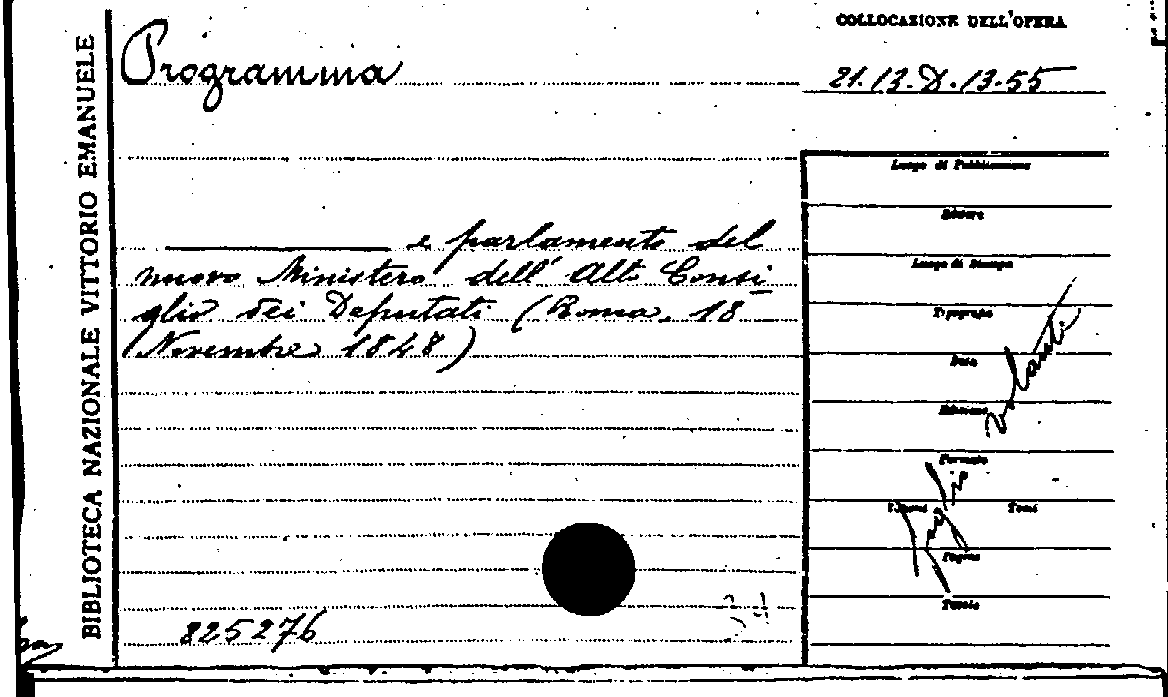 BIBLIOTECA NAZIONALE VITTORIO EMANUELE
Programma
e parlamento del
nuovo Ministero dell' Alto Consi
glio dei Deputati (Roma, 18
Novembre 1848)
825276
COLLOCAZIONE DELL'OPERA
21.12.D.13.55
Luogo di Pubblicazione
Editore
Luogo di Stampa
Tipografo
Data
Edizione
Formato
Volumi Tomi
Pagine
Tavole
Foglio
volanti